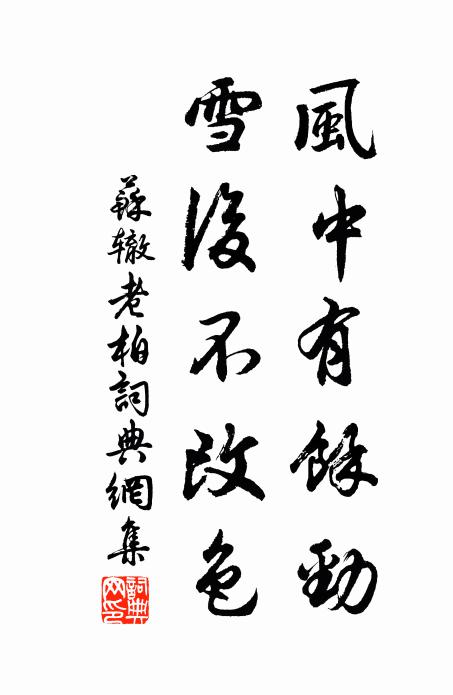 風中有餘勁
雪後不改色
蘇辙老柏詞典網集
詞典网印